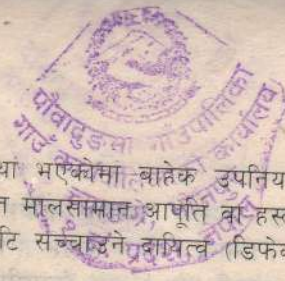 पौवादुङमा गाउँपालिका
गाउँ कार्यपालिकाको कार्यालय
था भएकोमा बाहेक उपनिय
मालसामान आपूर्ति वा हस्त
टि सच्चाउने दायित्व (डिफे